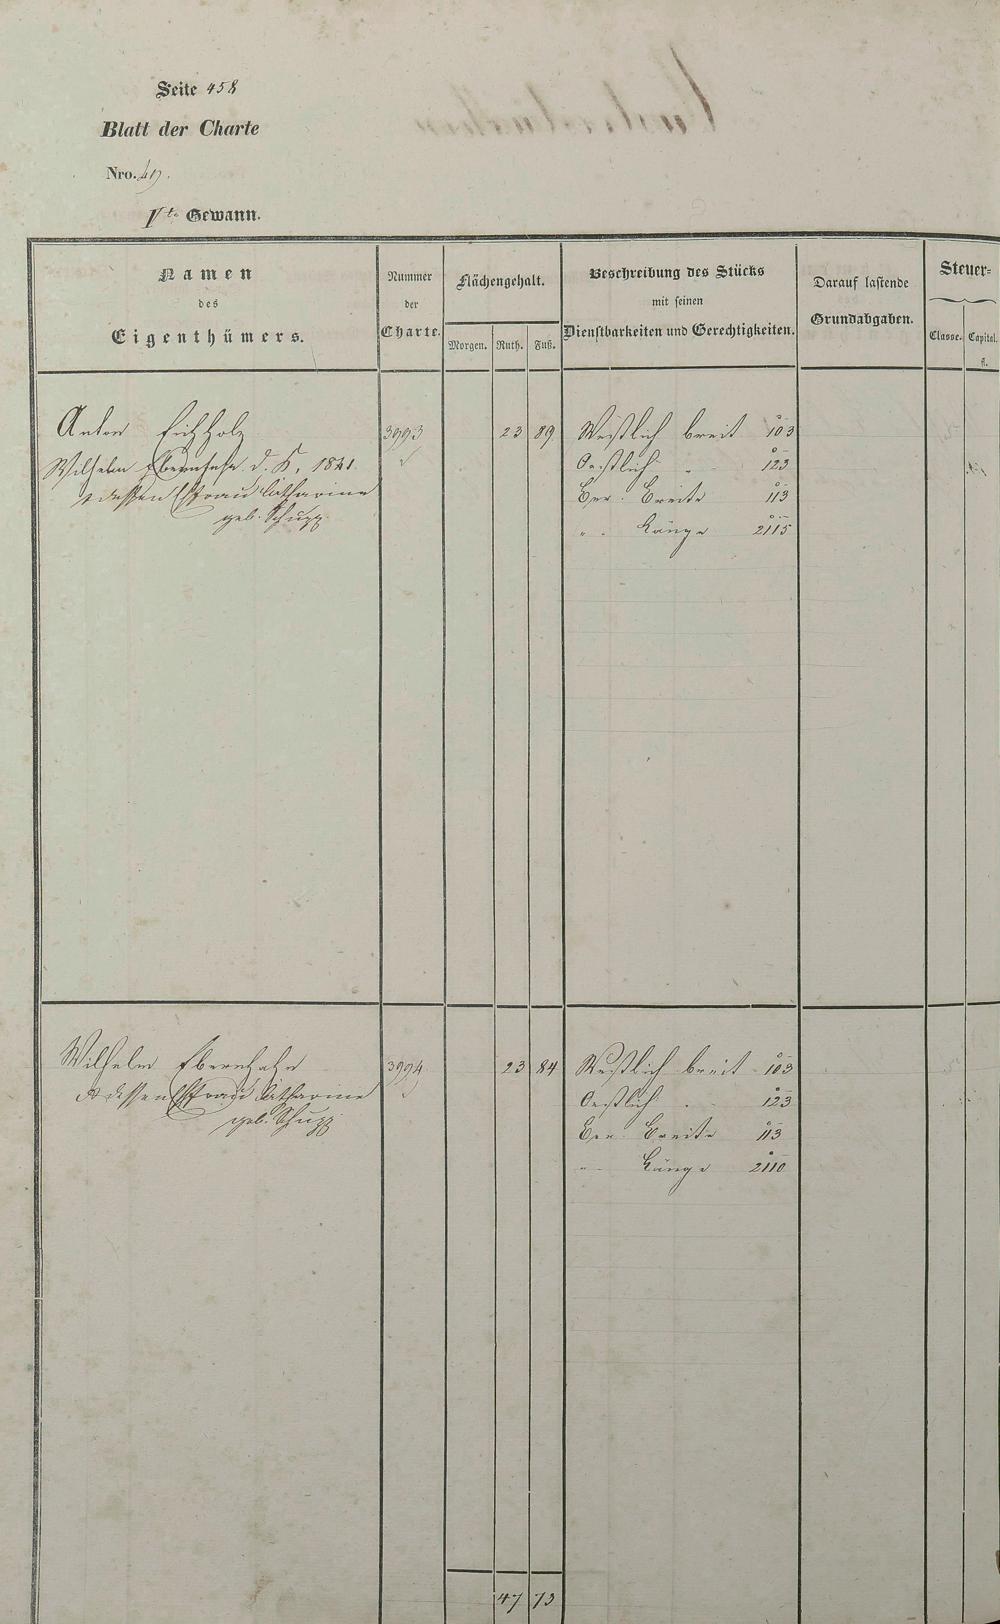 Seite 458
Blatt der Charte
Nro. 49.
1te Gewann.
Namen
des
Eigenthümers.
Nummer
der
Charte.
Flächengehalt.
Morgen. Ruth. Fuß.
Beschreibung des Stücks
mit seinen
Dienstbarkeiten und Gerechtigkeiten.
Darauf lastende
Grundabgaben.
Steuer=
Classe. Capital.
fl.
Anton Eichholz 3993 23 89 Westlich breit 103
Wilhelm Ebernhahn d. K. 1841 Oestlich " 123
& dessen Ehefrau Catharine Ber. Breite 113
geb. Schupp. " Länge 2115
Wilhelm Ebernhahn 3994 23 84 Westlich breit 103
& dessen Ehefrau Catharine Oestlich " 123
geb. Schupp. Ber. Breite 113
" Länge 2110
47 73